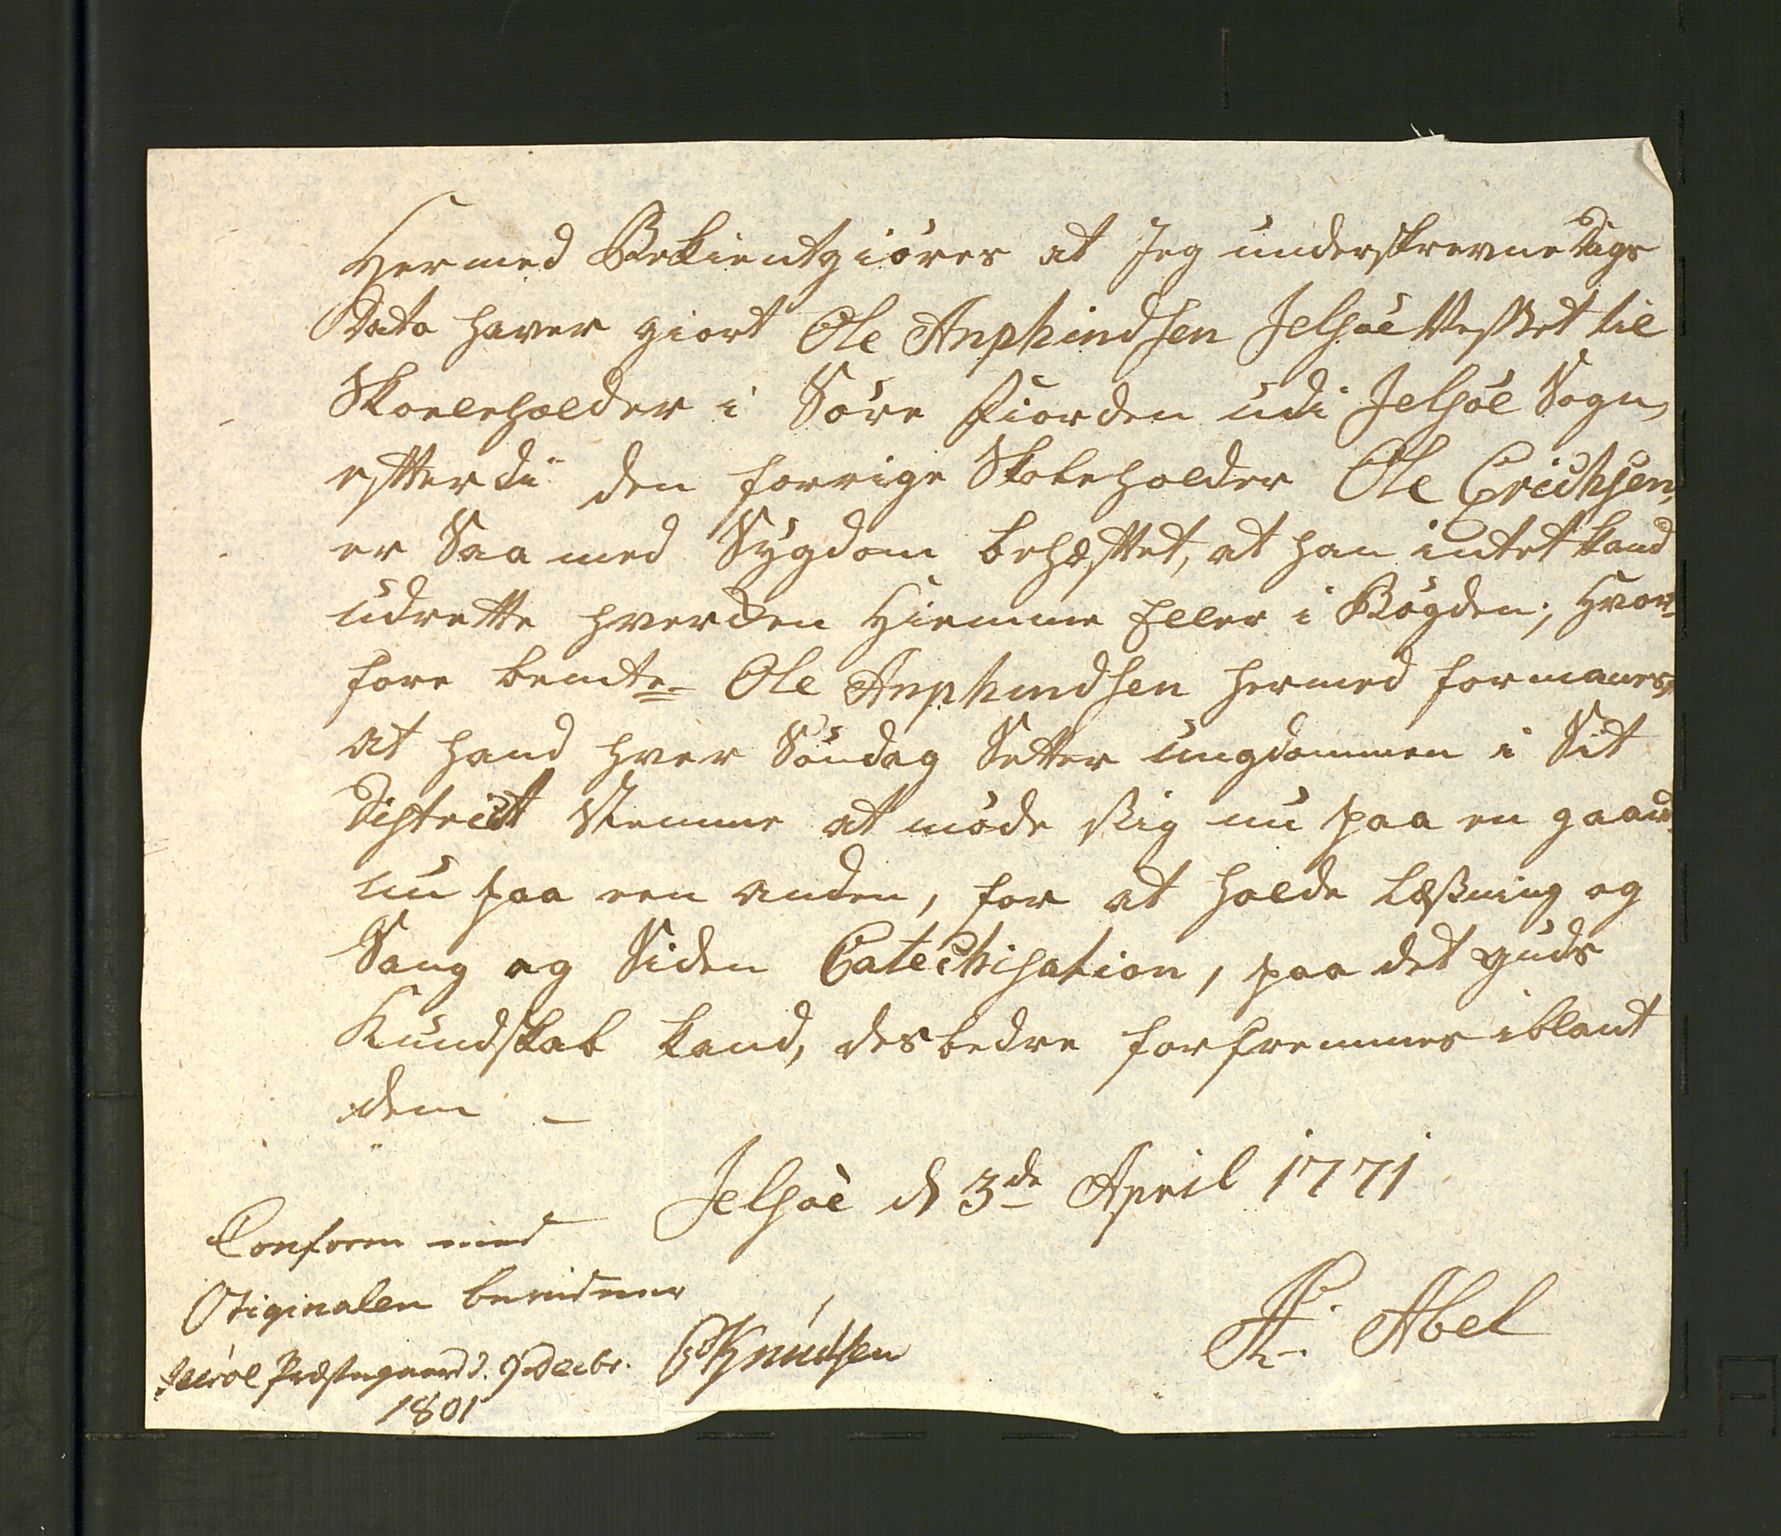 Hermed Bekientgiöres at Jeg underskrevne Dags
Dato haver giort Ole Anphindsen Jelsöe til
Skoeleholder i Söre Fiorden udi Jelsöe Sogn,
efterdi den forrige Skoleholder Ole Erichsen,
er Saa med Sygdom behæftet, at han intet kand
udrette hverken Hiemme Eller i Bögden; Hvor-
fore bemte Ole Anphindsen hermed formanes,
at hand hver Söndag Setter ungdommen i Sit
District Stemme at möde sig nu paa en gaard
nu paa een anden, for at holde Læsning og
Sang og Siden Catechisation, paa det guds
Kundskab kand, desbedre forfremmes iblant
dem –
Jelsöe d 3de April 1771
F. Abel
Conform med
Originalen bevidner
Præstegaard d. 9 Decbr. Knudsen
1801